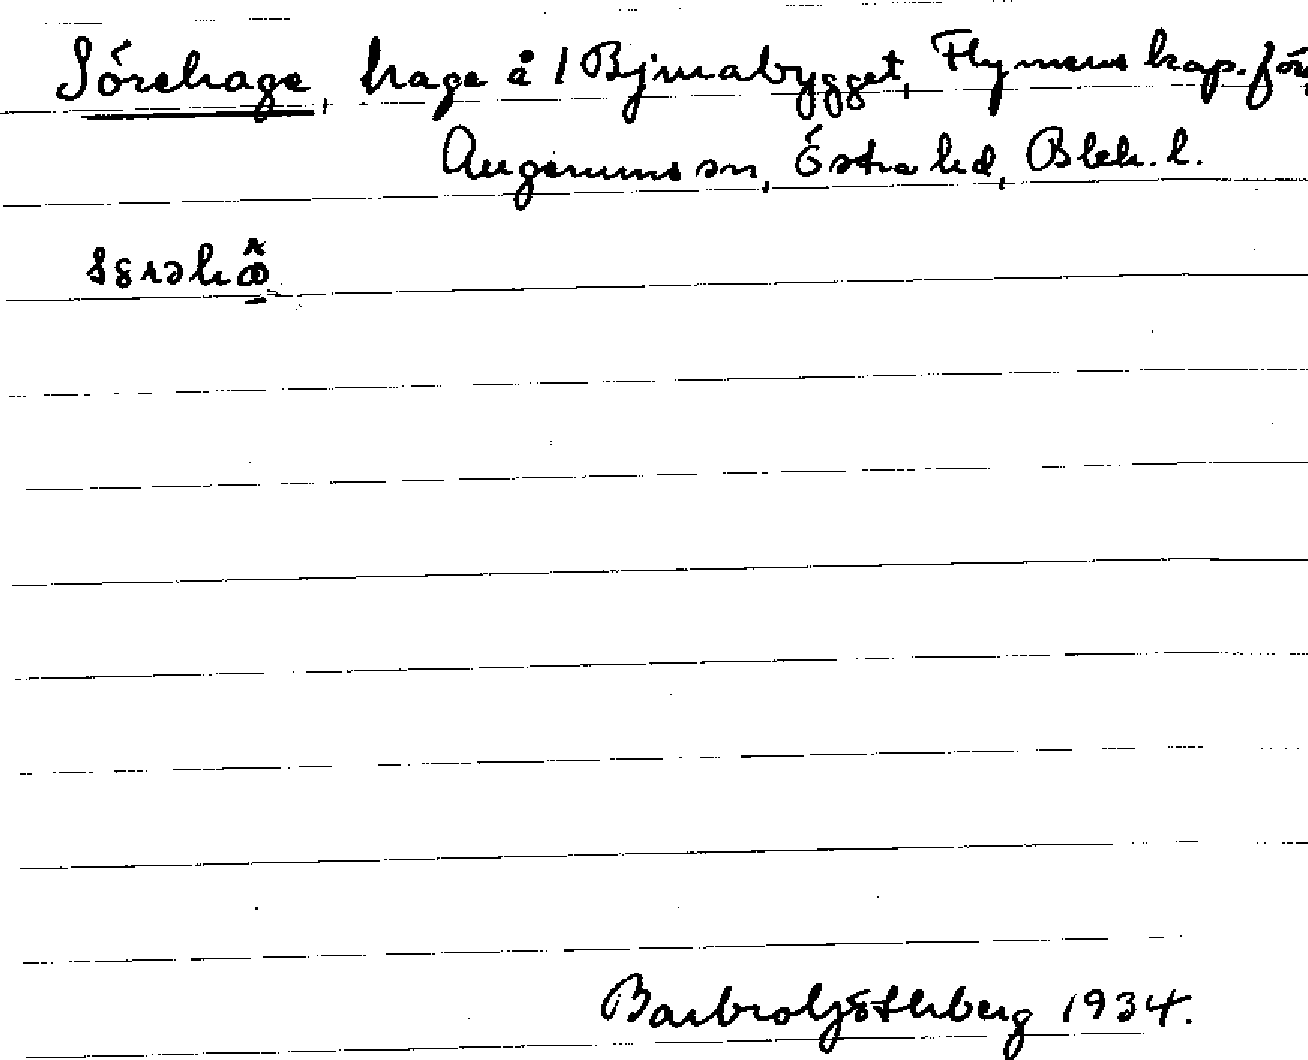 Sörehage, hage å 1 Björnabygget, Flymens kap. förs,
Augerums sn, Östra hd, Blek. l.
Barbro Göthberg 1934.